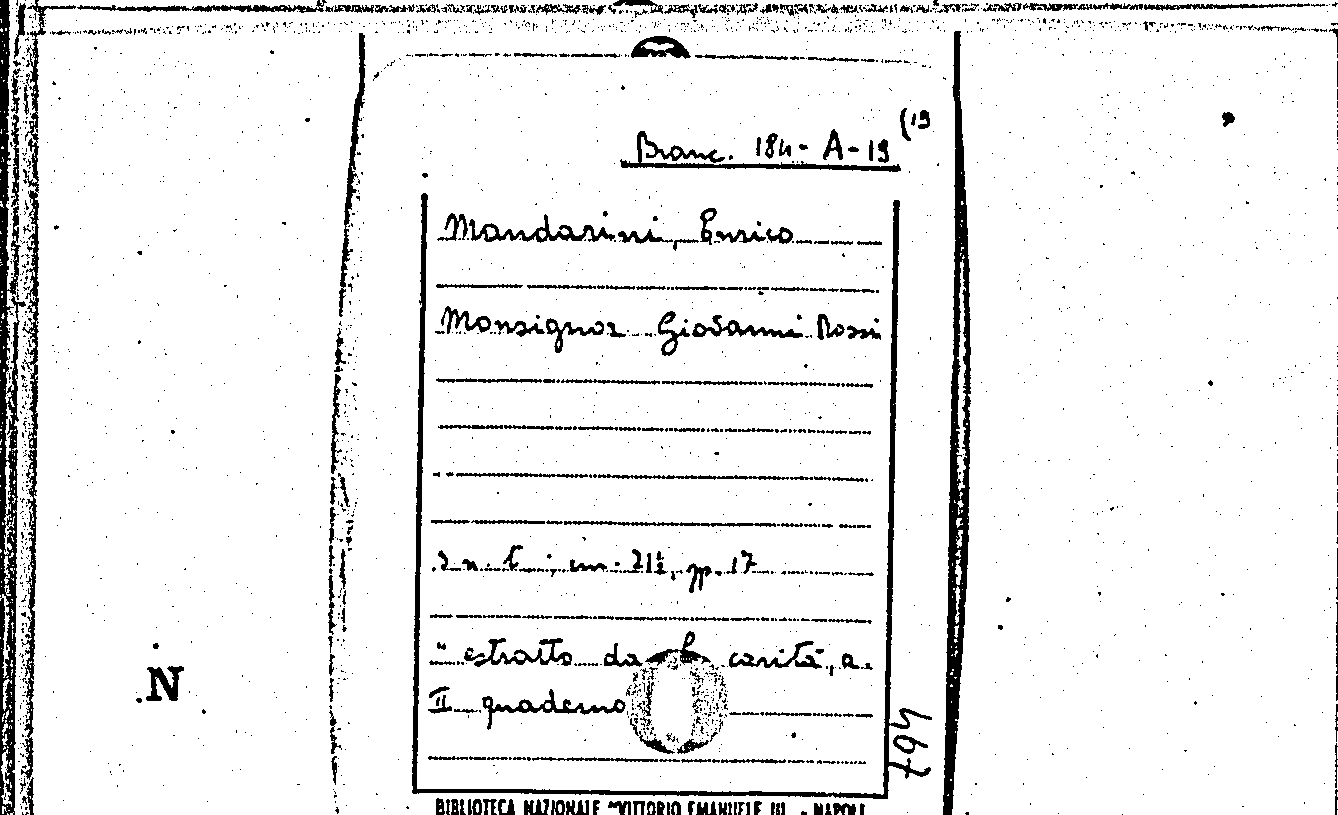 (19
Branc. 184-A-19
Mandarini, Enrico
Monsignor Giovanni Rossi
s. n. t.; cm. 21½, pp. 17
" estratto da carità, a.
II quaderno
467
N
BIBLIOTECA NAZIONALE "VITTORIO EMANUELE III - NAPOLI